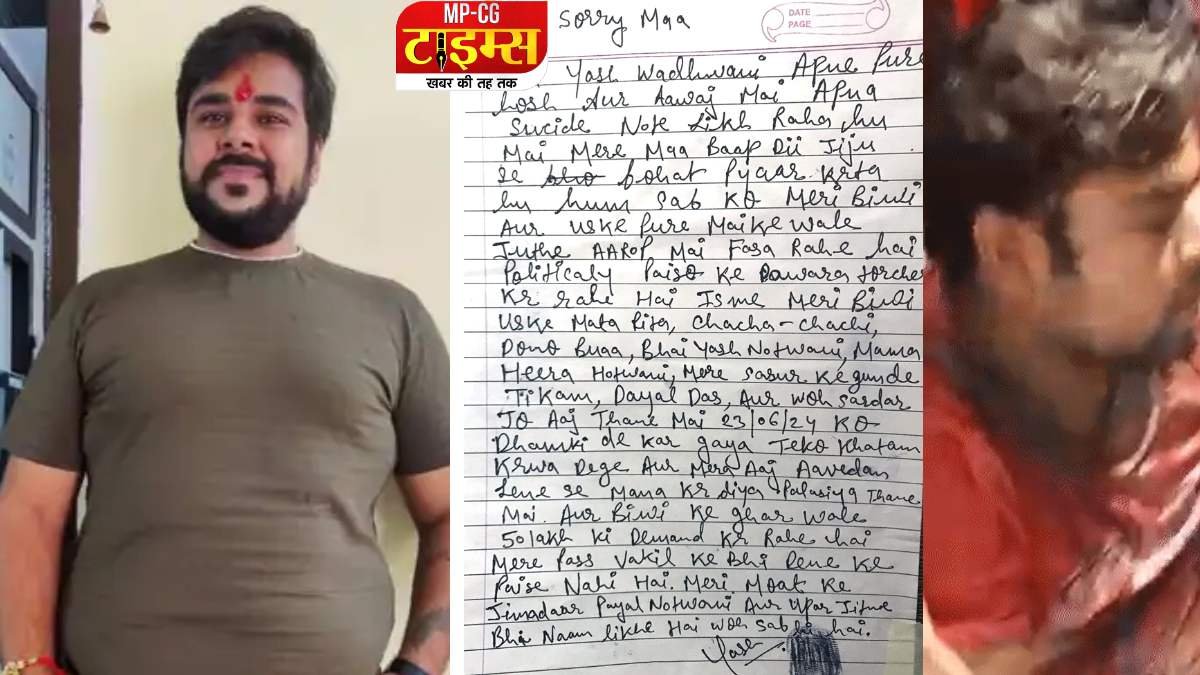 MP-CG
टाइम्स
खबर की तह तक
DATE
PAGE
Sorry Maa
Yash Wadhwani Apne Pure
hosh Aur Aawaj Mai Apna
Sucide Note Likh Raha hu
Mai Mere Maa Baap Dii Jiju
se bohat Pyaar Krta
hu hum sab KO Meri Biwi
Aur uske Pure Maike wale
Juthe AAROP Mai Fasa Rahe hai
Politicaly Paiso Ke Dawara torcher
Kr rahe Hai Isme Meri Biwi
uske Mata Pita, Chacha-Chachi,
Dono Buaa, Bhai Yash Notwani, Mama
Heera Hotwani, Mere Sasur Ke gunde
Tikam, Dayal Das, Aur woh sardar
JO Aaj Thane Mai 23/06/24 KO
Dhamki de kar gaya Teko Khatam
Krwa Dege Aur Mera Aaj Aavedan
Lene se Mana Kr diya Palasiya Thane
Mai. Aur Biwi Ke ghar wale
50 lakh ki Demand Kr Rahe hai
Mere Pass Vakil Ke Bhi Dene Ke
Paise Nahi Hai. Meri Moat Ke
Jimadaar Payal Notwani Aur Upar Jitne
Bhi Naam likhe Hai woh sab hi hai.
Yash